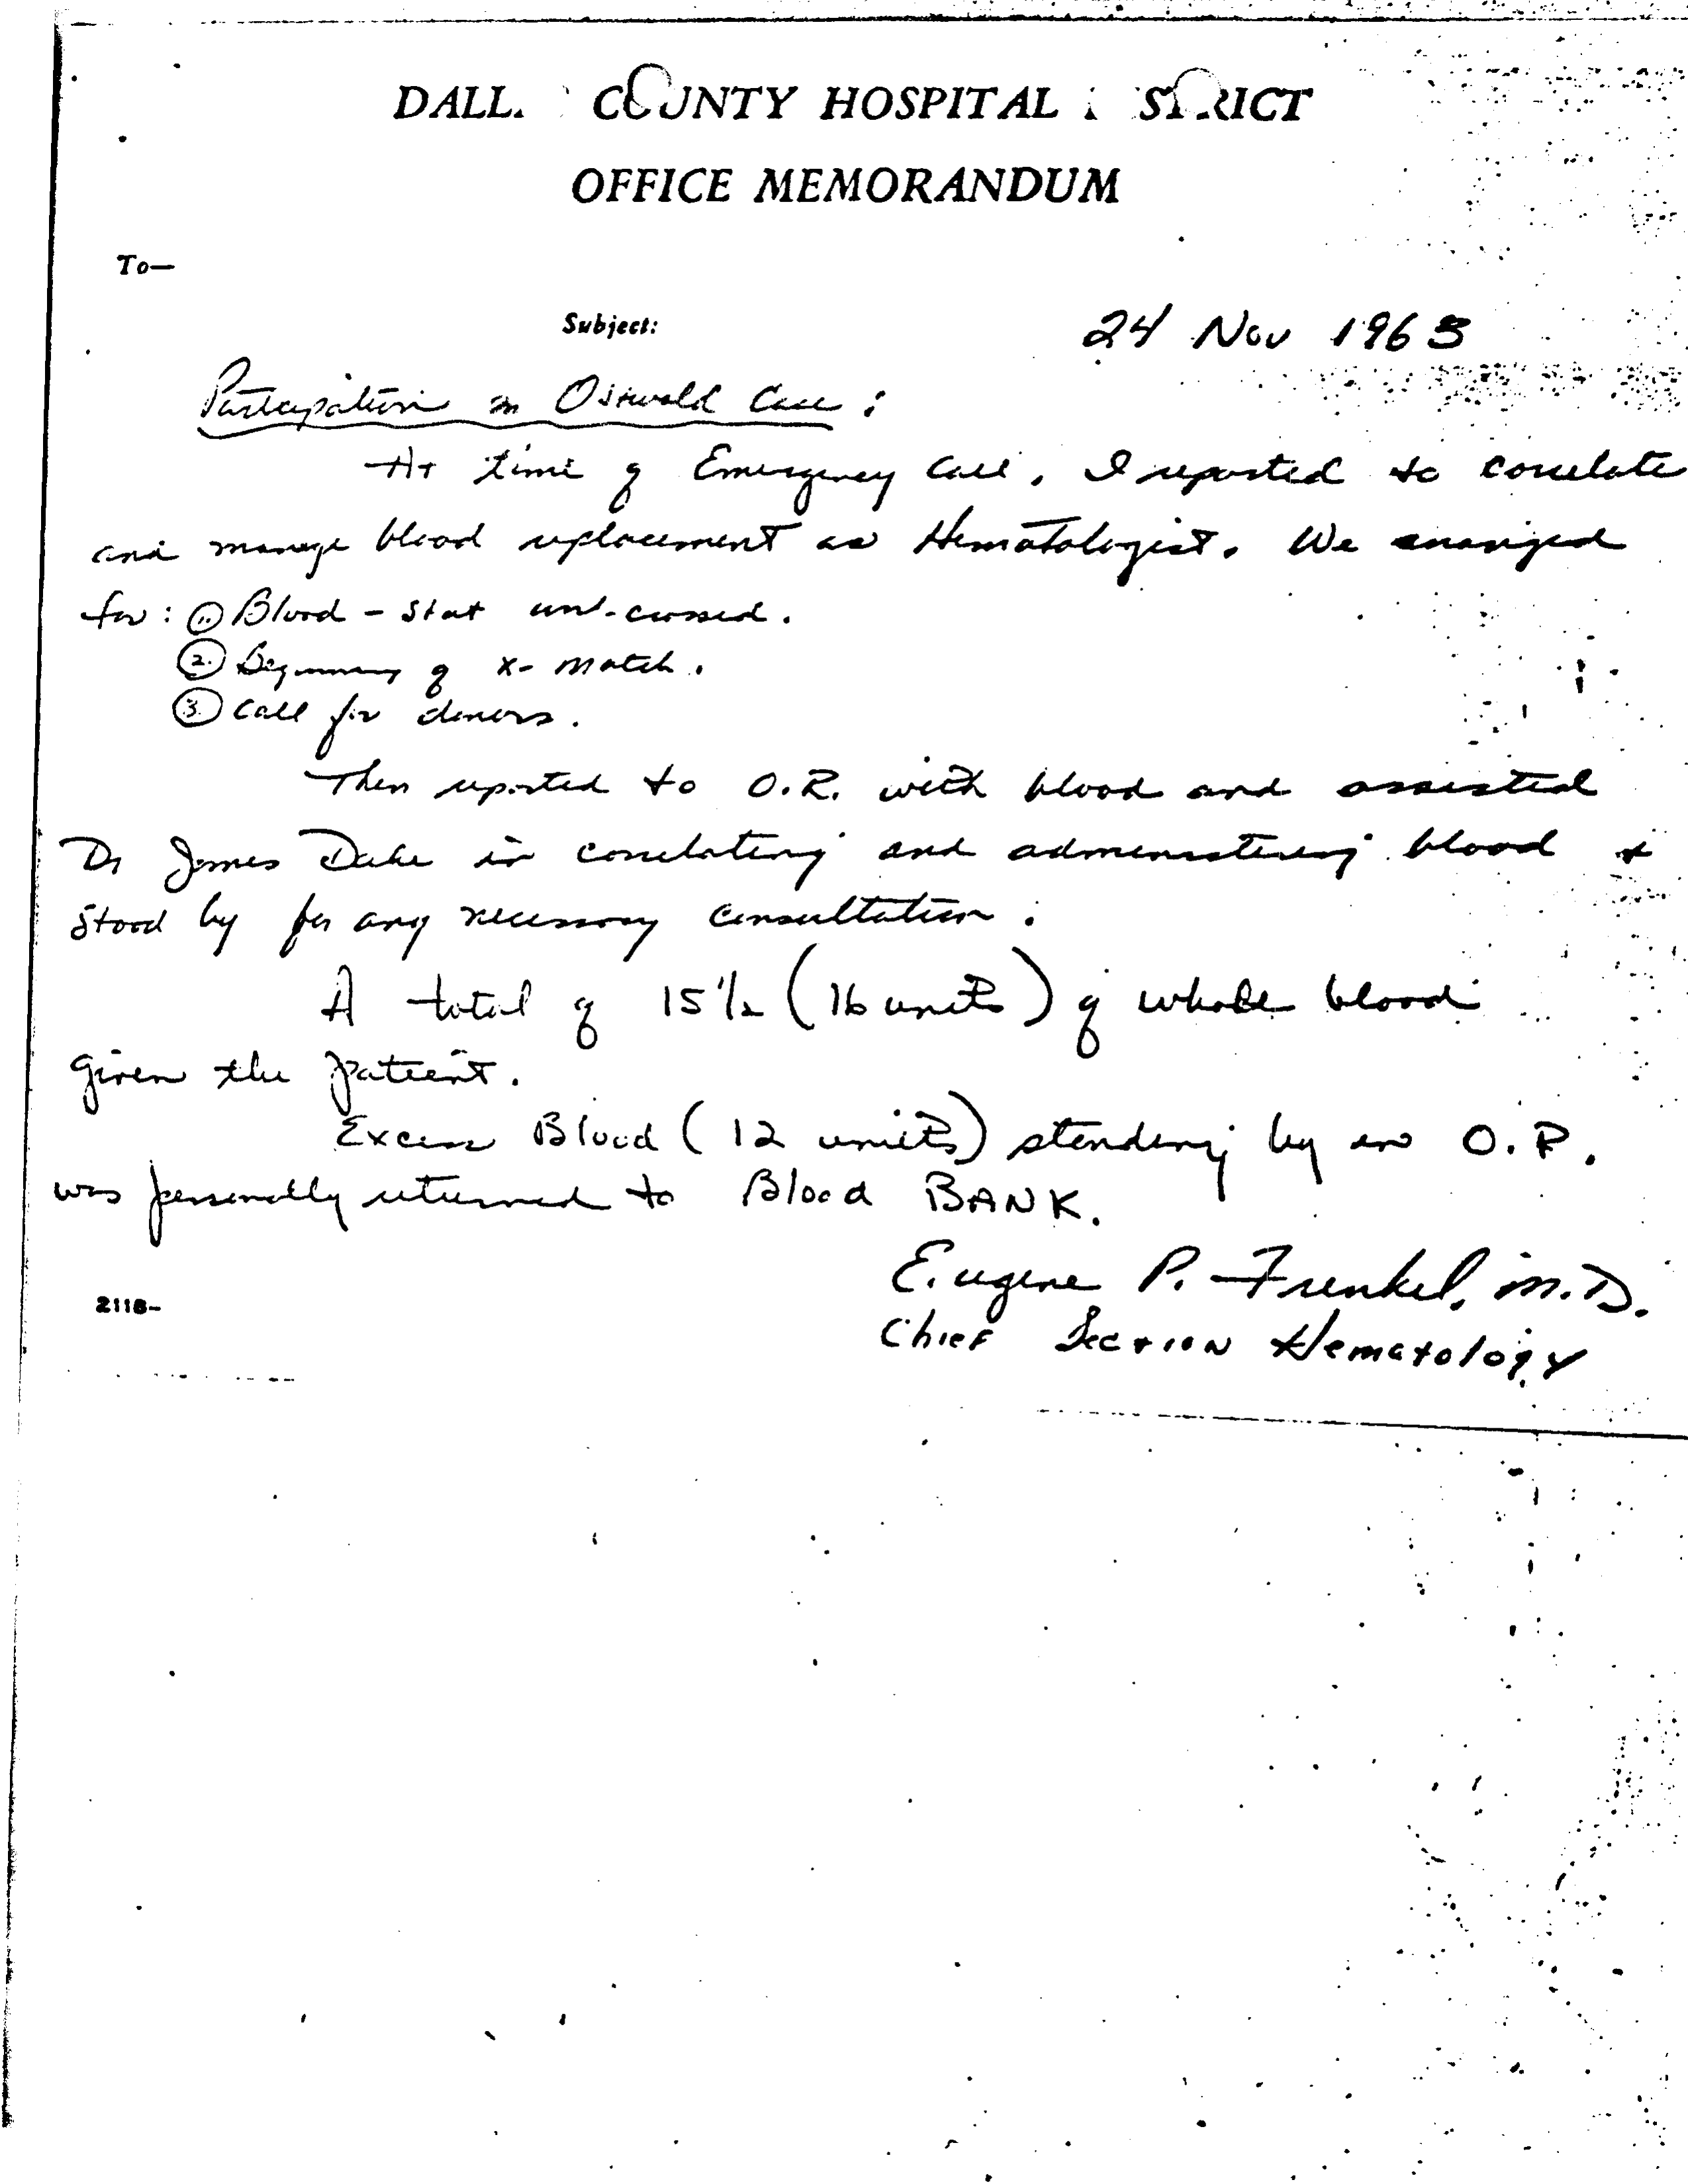 DALL. COUNTY HOSPITAL STRICT
OFFICE MEMORANDUM
To—
Subject:
24 Nov 1963
Participation in Oswald Case:
At time of Emergency Call, I reported to correlate
and manage blood replacement as Hematologist. We arranged
for: 1. Blood - stat un-crossed.
2. Beginning of x-match.
3. Call for donors.
Then reported to O.R. with blood and assisted
Dr James in correlating and administering blood +
stood by for any necessary consultation.
A total of 15½ (16 units) of whole blood
given the patient.
Excess Blood (12 units) standing by in O.R.
was personally returned to Blood BANK.
Eugene P. Frenkel, M.D.
2118-
Chief Section Hematology